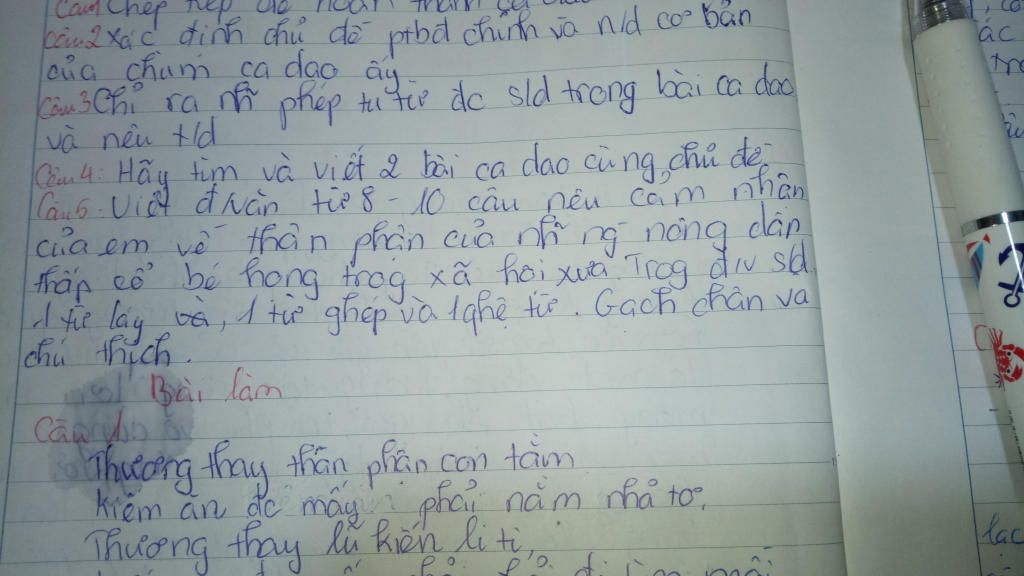 Câu1 Chép tiếp để hoàn thành ca dao
Câu2 Xác định chủ đề ptbđ chính và n/d cơ bản
của chùm ca dao ấy
Câu3 Chỉ ra nh~ phép tu từ đc s/d trong bài ca dao
và nêu t/d
Câu4: Hãy tìm và viết 2 bài ca dao cùng chủ đề.
Câu5. Viết đ văn từ 8 - 10 câu nêu cảm nhận
của em về thân phận của những nông dân
thấp cổ bé họng trog xã hội xưa. Trog đ/v s/d
1 từ láy và, 1 từ ghép và 1 qhệ từ. Gạch chân và
chú thích.
Bài làm
Câu 1.
Thương thay thân phận con tằm
Kiếm ăn đc mấy phải nằm nhả tơ,
Thương thay lũ kiến li ti,